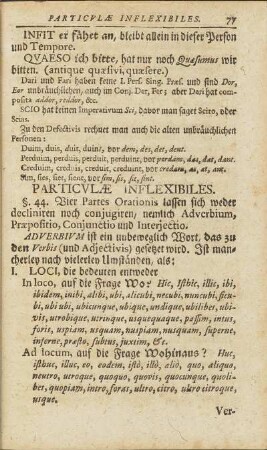 PARTICVLÆ INFLEXIBILES. 77
INFIT er fåhet an, bleibt allein in dieser Person
und Tempore.
QVAESO ich bitte, hat nur noch Quæsumus wir
bitten. (antique quæsivi, quæsere.)
Dari und Fari haben keine I. Pers. Sing. Præs. und sind Dor,
For unbräuchlichen, auch im Conj. Der, Fer; aber Dari hat com-
posita addor, reddor, &c.
SCIO hat keinen Imperativum Sci, davor man saget Scito, oder
Scias.
Zu den Defectivis rechnet man auch die alten unbräuchlichen
Personen:
Duim, duis, duit, duint, vor dem, des, det, dent.
Perduim, perduis, perduit, perduint, vor perdam, das, dat, dant.
Creduim, creduis, creduit, creduint, vor credam, as, at, ant.
Siem, sies, siet, sient, vor sim, sis, sit, sint.
PARTICULÆ INFLEXIBILES.
§. 44. Vier Partes Orationis lassen sich weder
decliniren noch conjugiren, nemlich Adverbium,
Præpositio, Conjunctio und Interjectio.
ADVERBIVM ist ein unbeweglich Wort, das zu
den Verbis (und Adjectivis) gesetzt wird. Ist man-
cherley nach vielerley Umständen, als:
I. LOCI, die bedeuten entweder
In loco, auf die Frage Wo? Hic, Isthic, illic, ibi,
ibidem, inibi, alibi, ubi, alicubi, necubi, nuncubi, sicu-
bi, ubi ubi, ubicunque, ubique, undique, ubilibet, ubi-
vis, utrobique, utrinque, usquequaque, passim, intus,
foris, uspiam, usquam, nuspiam, nusquam, superne,
inferne, præsto, subtus, juxtim, &c.
Ad locum, auf die Frage Wohinaus? Huc,
isthuc, illuc, eo, eodem, istò, illò, aliò, quo, aliquo,
neutro, utroque, quoquo, quovis, quocunque, quoli-
bet, quopiam, intro, foras, ultro, citro, ultro citroque,
usque.
Ver-